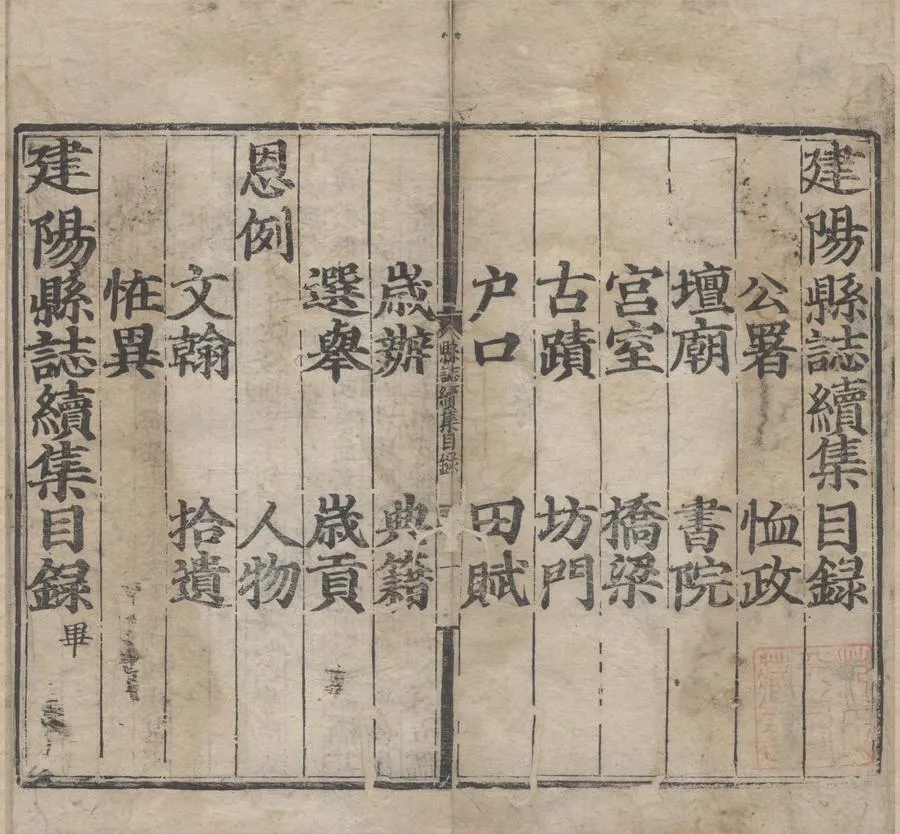 建陽縣誌續集目録
公署 恤政
壇廟 書院
宫室 橋梁
古蹟 坊門
户口 田賦
縣誌續集目録 一
歲辦 典籍
選舉 歲貢
恩例 人物
文翰 拾遺
恠異
建陽縣誌續集目録畢